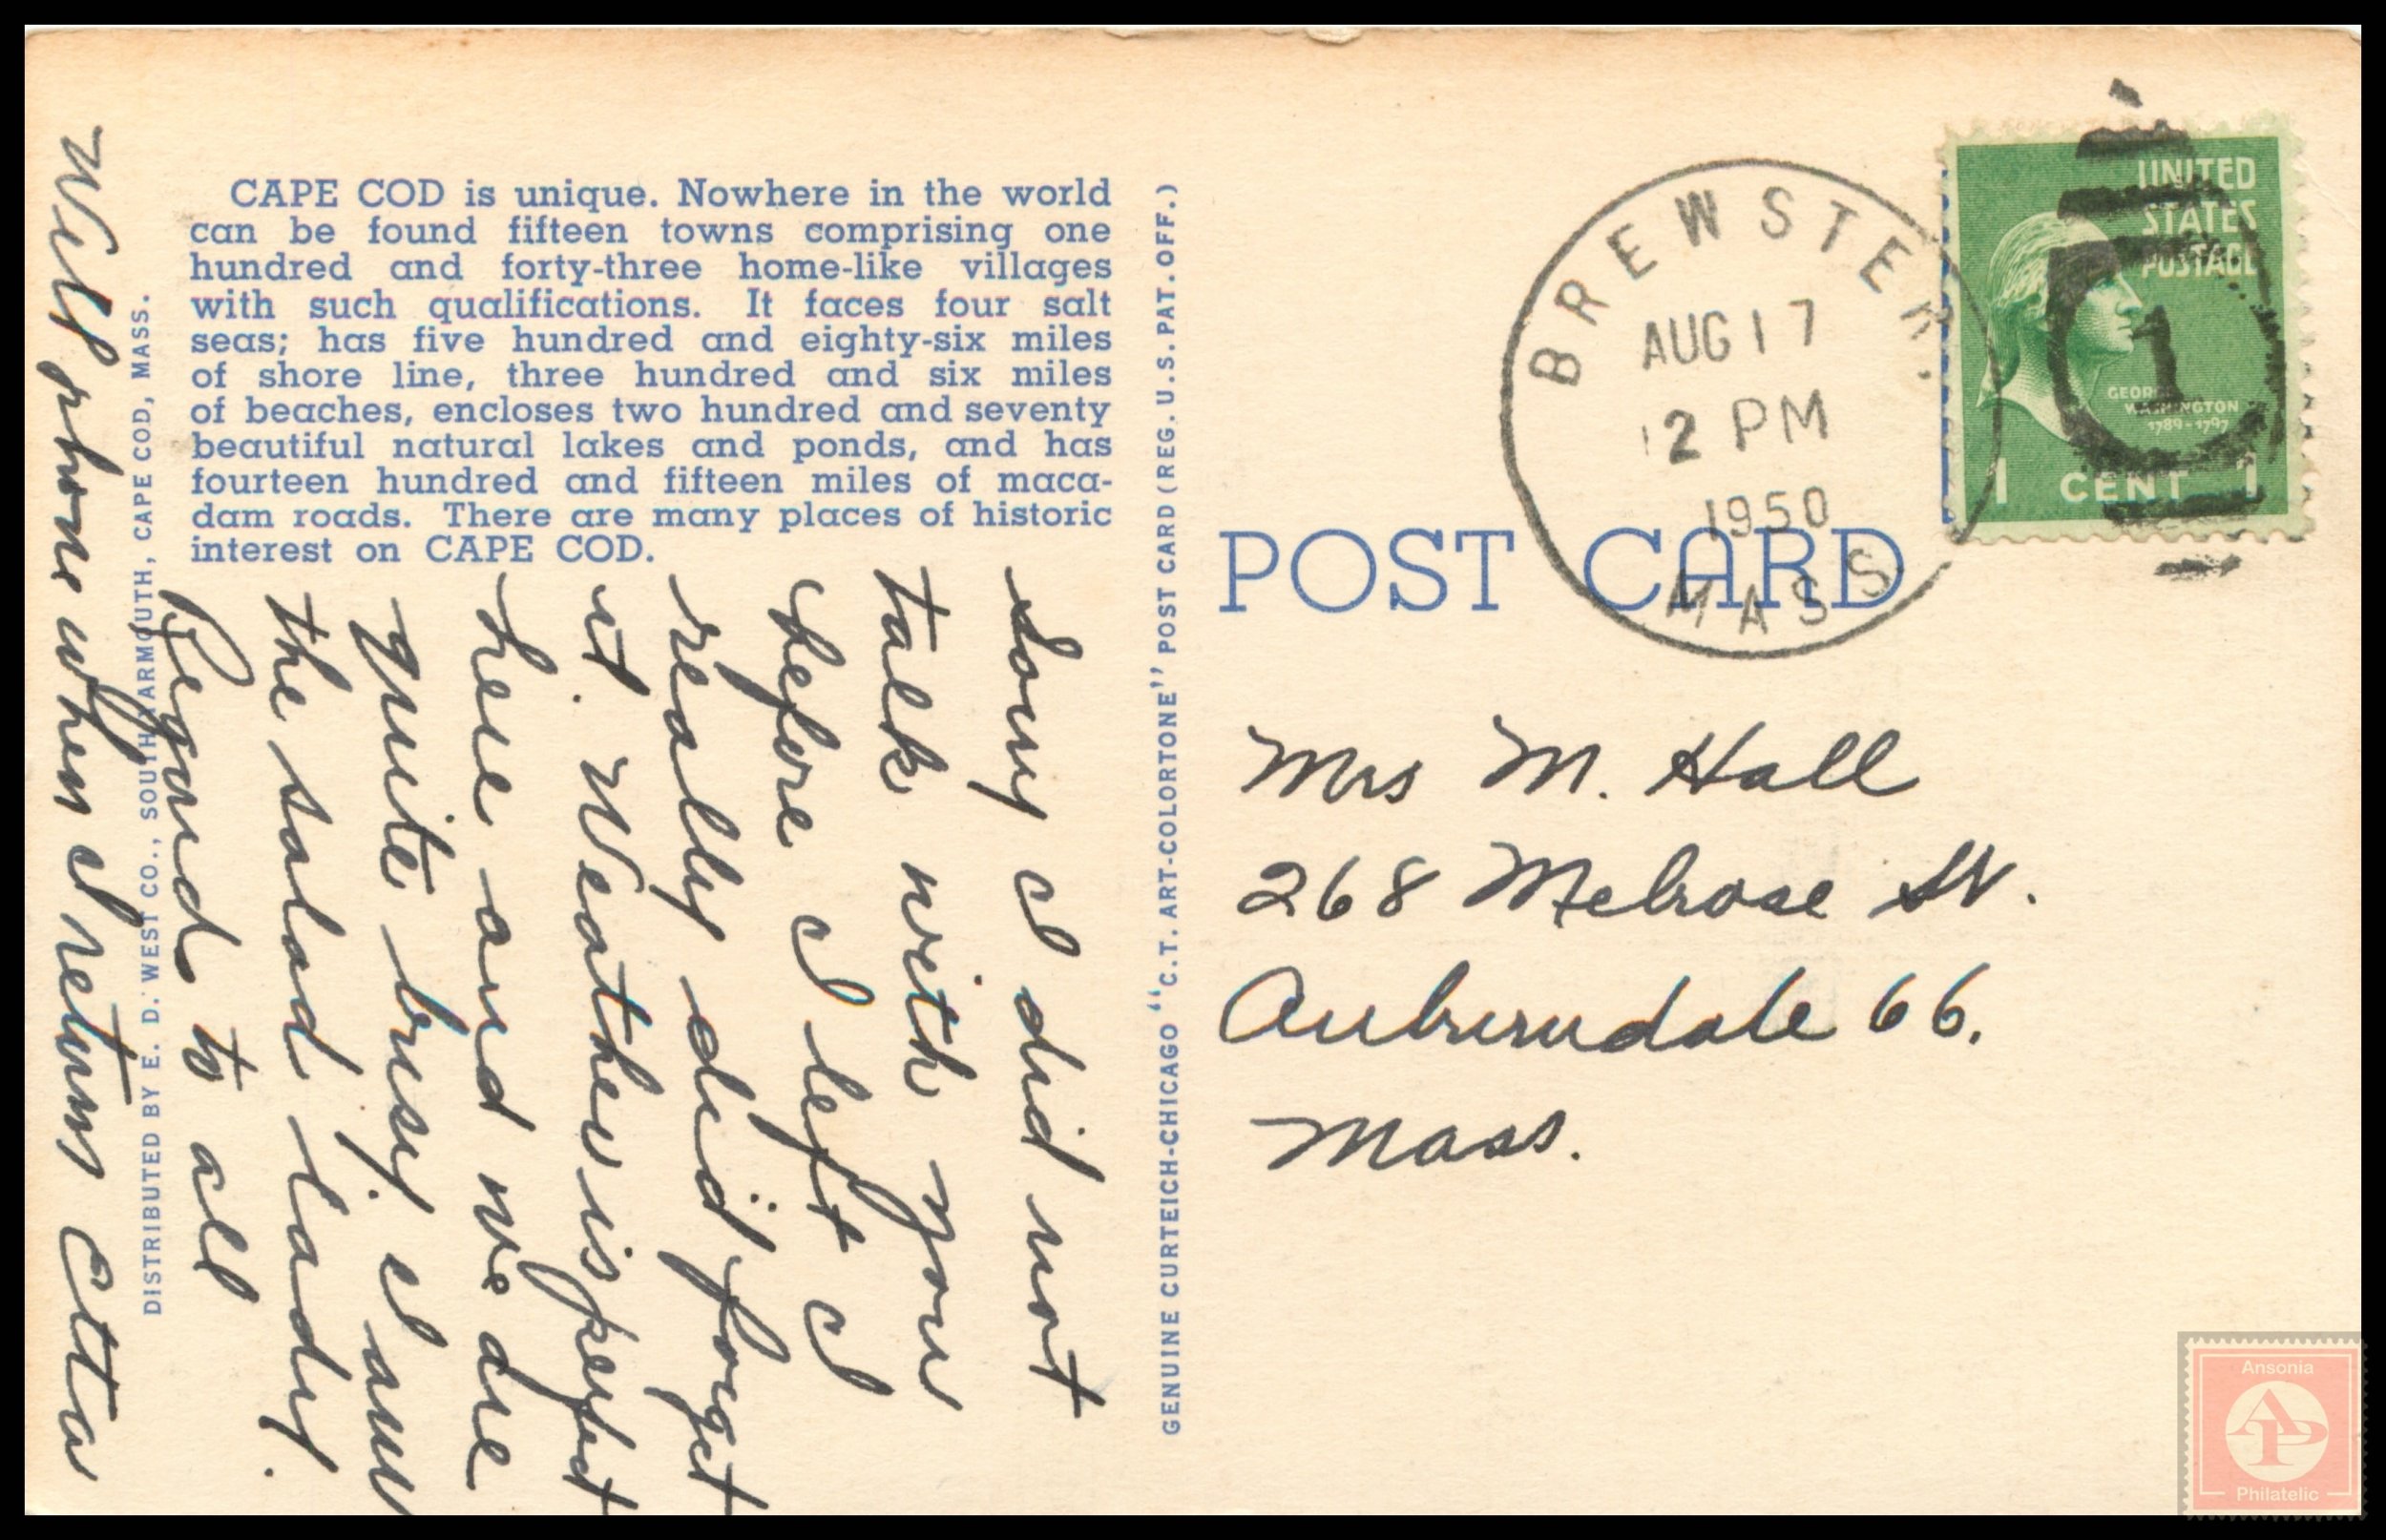 CAPE COD is unique. Nowhere in the world
can be found fifteen towns comprising one
hundred and forty-three home-like villages
with such qualifications. It faces four salt
seas; has five hundred and eighty-six miles
of shore line, three hundred and six miles
of beaches, encloses two hundred and seventy
beautiful natural lakes and ponds, and has
fourteen hundred and fifteen miles of maca-
dam roads. There are many places of historic
interest on CAPE COD.
Sorry I did not
talk with you
before I left I
really did forget
it. Weather is perfect
here and we are
quite busy. I am
the salad lady.
Regards to all
Will phone when I return Etta
DISTRIBUTED BY E. D. WEST CO., SOUTH YARMOUTH, CAPE COD, MASS.
GENUINE CURTEICH-CHICAGO "C.T. ART-COLORTONE" POST CARD (REG. U.S. PAT. OFF.)
POST CARD
BREWSTER.
AUG 17
12 PM
1950
MASS
UNITED
STATES
POSTAGE
1
GEORGE
WASHINGTON
1789-1797
1 CENT 1
Mrs M. Hall
268 Melrose St.
Auburndale 66.
Mass.
Ansonia
AP
Philatelic